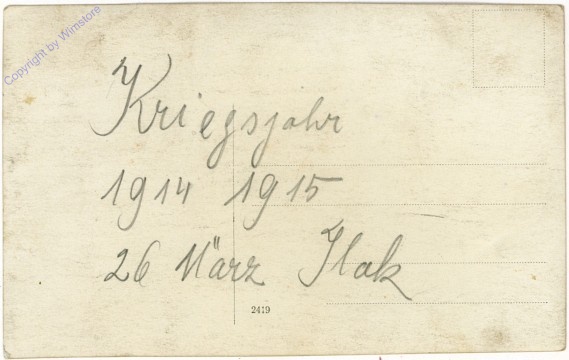 Copyright by Wimstore
Kriegsjahr
1914 1915
26 März Ilok
2419